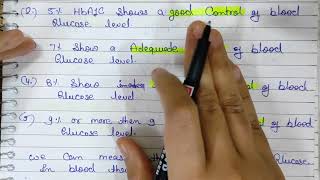 (2.) 5% HbA1C Shows a good Control of blood
Glucose level.
7% Show a Adequade of blood
Glucose level.
(4.) 8% Show of blood
Glucose level.
(5) 9% or more then 9 of blood
Glucose level.
we Can meas Glucose.
In blood thro